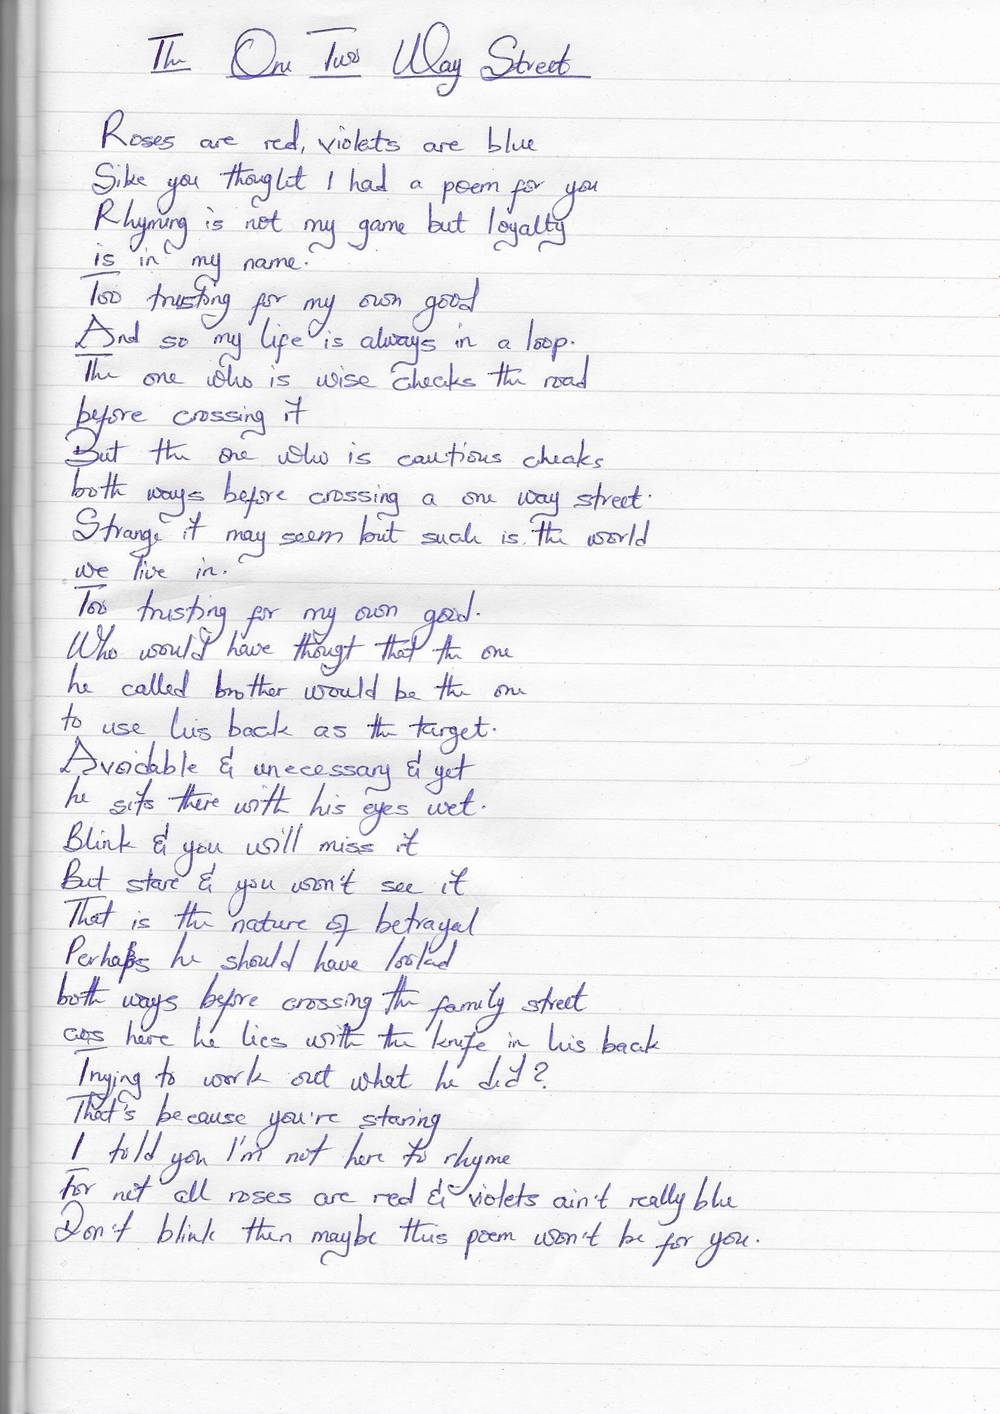 The One Two Way Street
Roses are red, violets are blue
Sike you thought I had a poem for you
Rhyming is not my game but loyalty
is in my name.
Too trusting for my own good
And so my life is always in a loop.
The one who is wise checks the road
before crossing it
But the one who is cautious checks
both ways before crossing a one way street.
Strange it may seem but such is the world
we live in.
Too trusting for my own good.
Who would have thougt that the one
he called brother would be the one
to use his back as the target.
Avoidable & unecessary & yet
he sits there with his eyes wet.
Blink & you will miss it
But stare & you won't see it
That is the nature of betrayal
Perhaps he should have looked
both ways before crossing the family street
cos here he lies with the knife in his back
Trying to work out what he did?
That's because you're staring
I told you I'm not here to rhyme
For not all roses are red & violets ain't really blue
Don't blink then maybe this poem won't be for you.